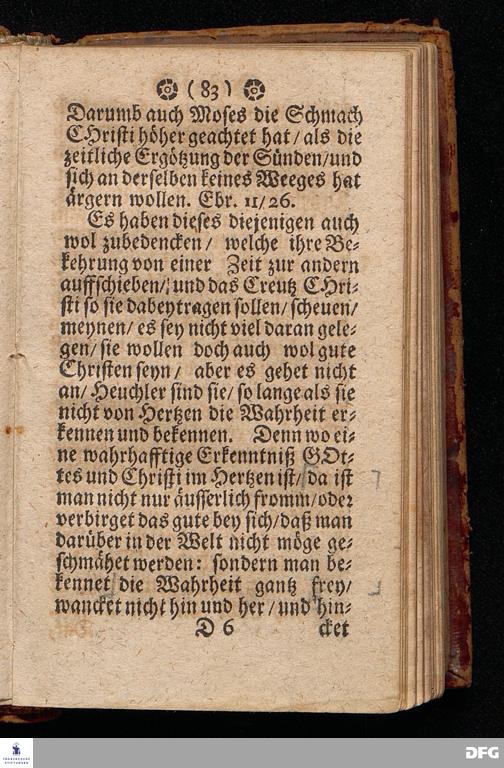 (83)
Darumb auch Moses die Schmach
CHristi höher geachtet hat/ als die
zeitliche Ergötzung der Sünden/und
sich an derselben keines Weeges hat
ärgern wollen. Ebr. 11/26.
Es haben dieses diejenigen auch
wol zubedencken/ welche ihre Be-
kehrung von einer Zeit zur andern
auffschieben/ und das Creutz CHri-
sti so sie dabey tragen sollen/ scheuen/
meynen/ es sey nicht viel daran gele-
gen/ sie wollen doch auch wol gute
Christen seyn/ aber es gehet nicht
an/ Heuchler sind sie/ so lange als sie
nicht von Hertzen die Wahrheit er-
kennen und bekennen. Denn wo ei-
ne wahrhafftige Erkenntniß GOt-
tes und Christi im Hertzen ist/ da ist
man nicht nur äusserlich fromm/oder
verbirget das gute bey sich/daß man
darüber in der Welt nicht möge ge-
schmähet werden: sondern man be-
kennet die Wahrheit gantz frey/
wancket nicht hin und her/ und hin-
D 6 cket
FRANCKESCHE
STIFTUNGEN
DFG